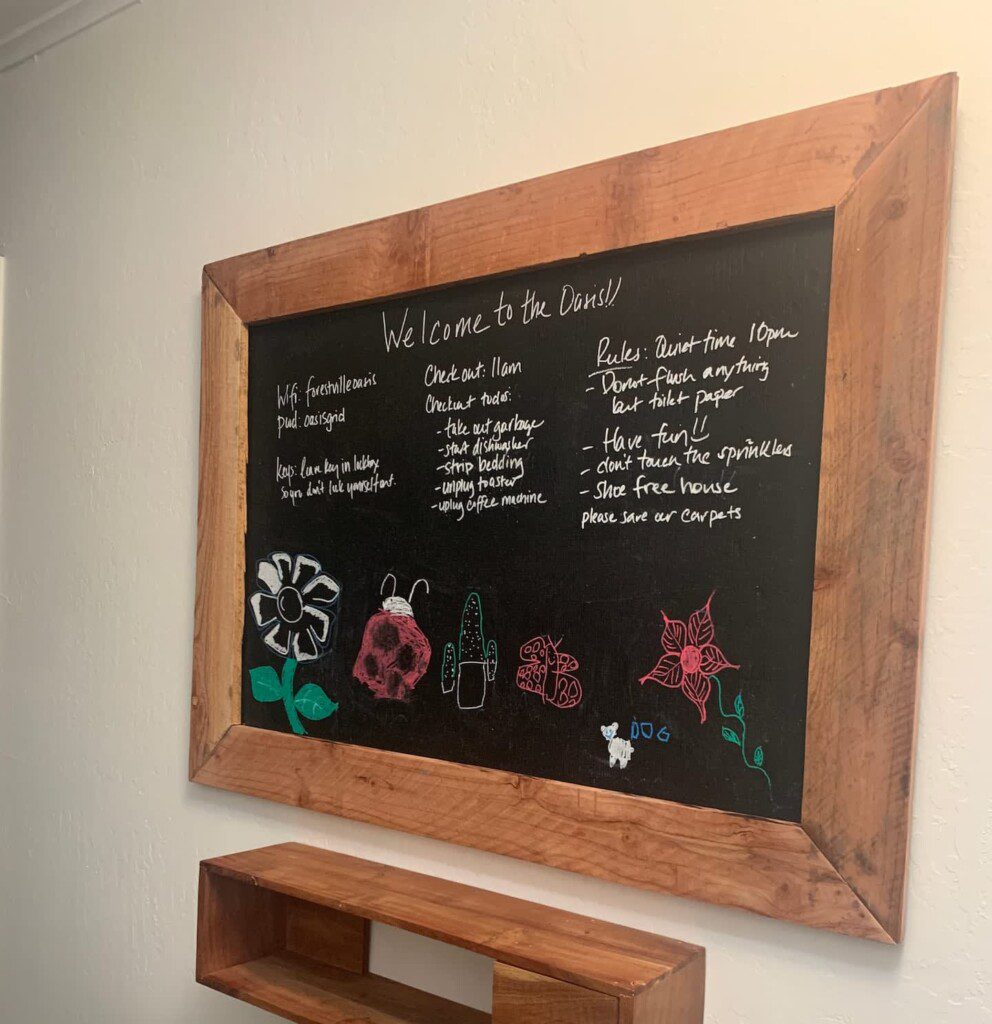 Welcome to the Oasis!!
Wifi: forestvilleoasis
pwd: oasisgrid
Keys: leave key in lockbox
so you don't lock yourself out.
Check out: 11am
Checkout todos:
- take out garbage
- start dishwasher
- strip bedding
- unplug toaster
- uplug coffee machine
Rules: Quiet time 10pm
- Donot flush anything
but toilet paper
- Have fun!!
- don't touch the sprinklers
- Shoe free house
please save our carpets
DOG